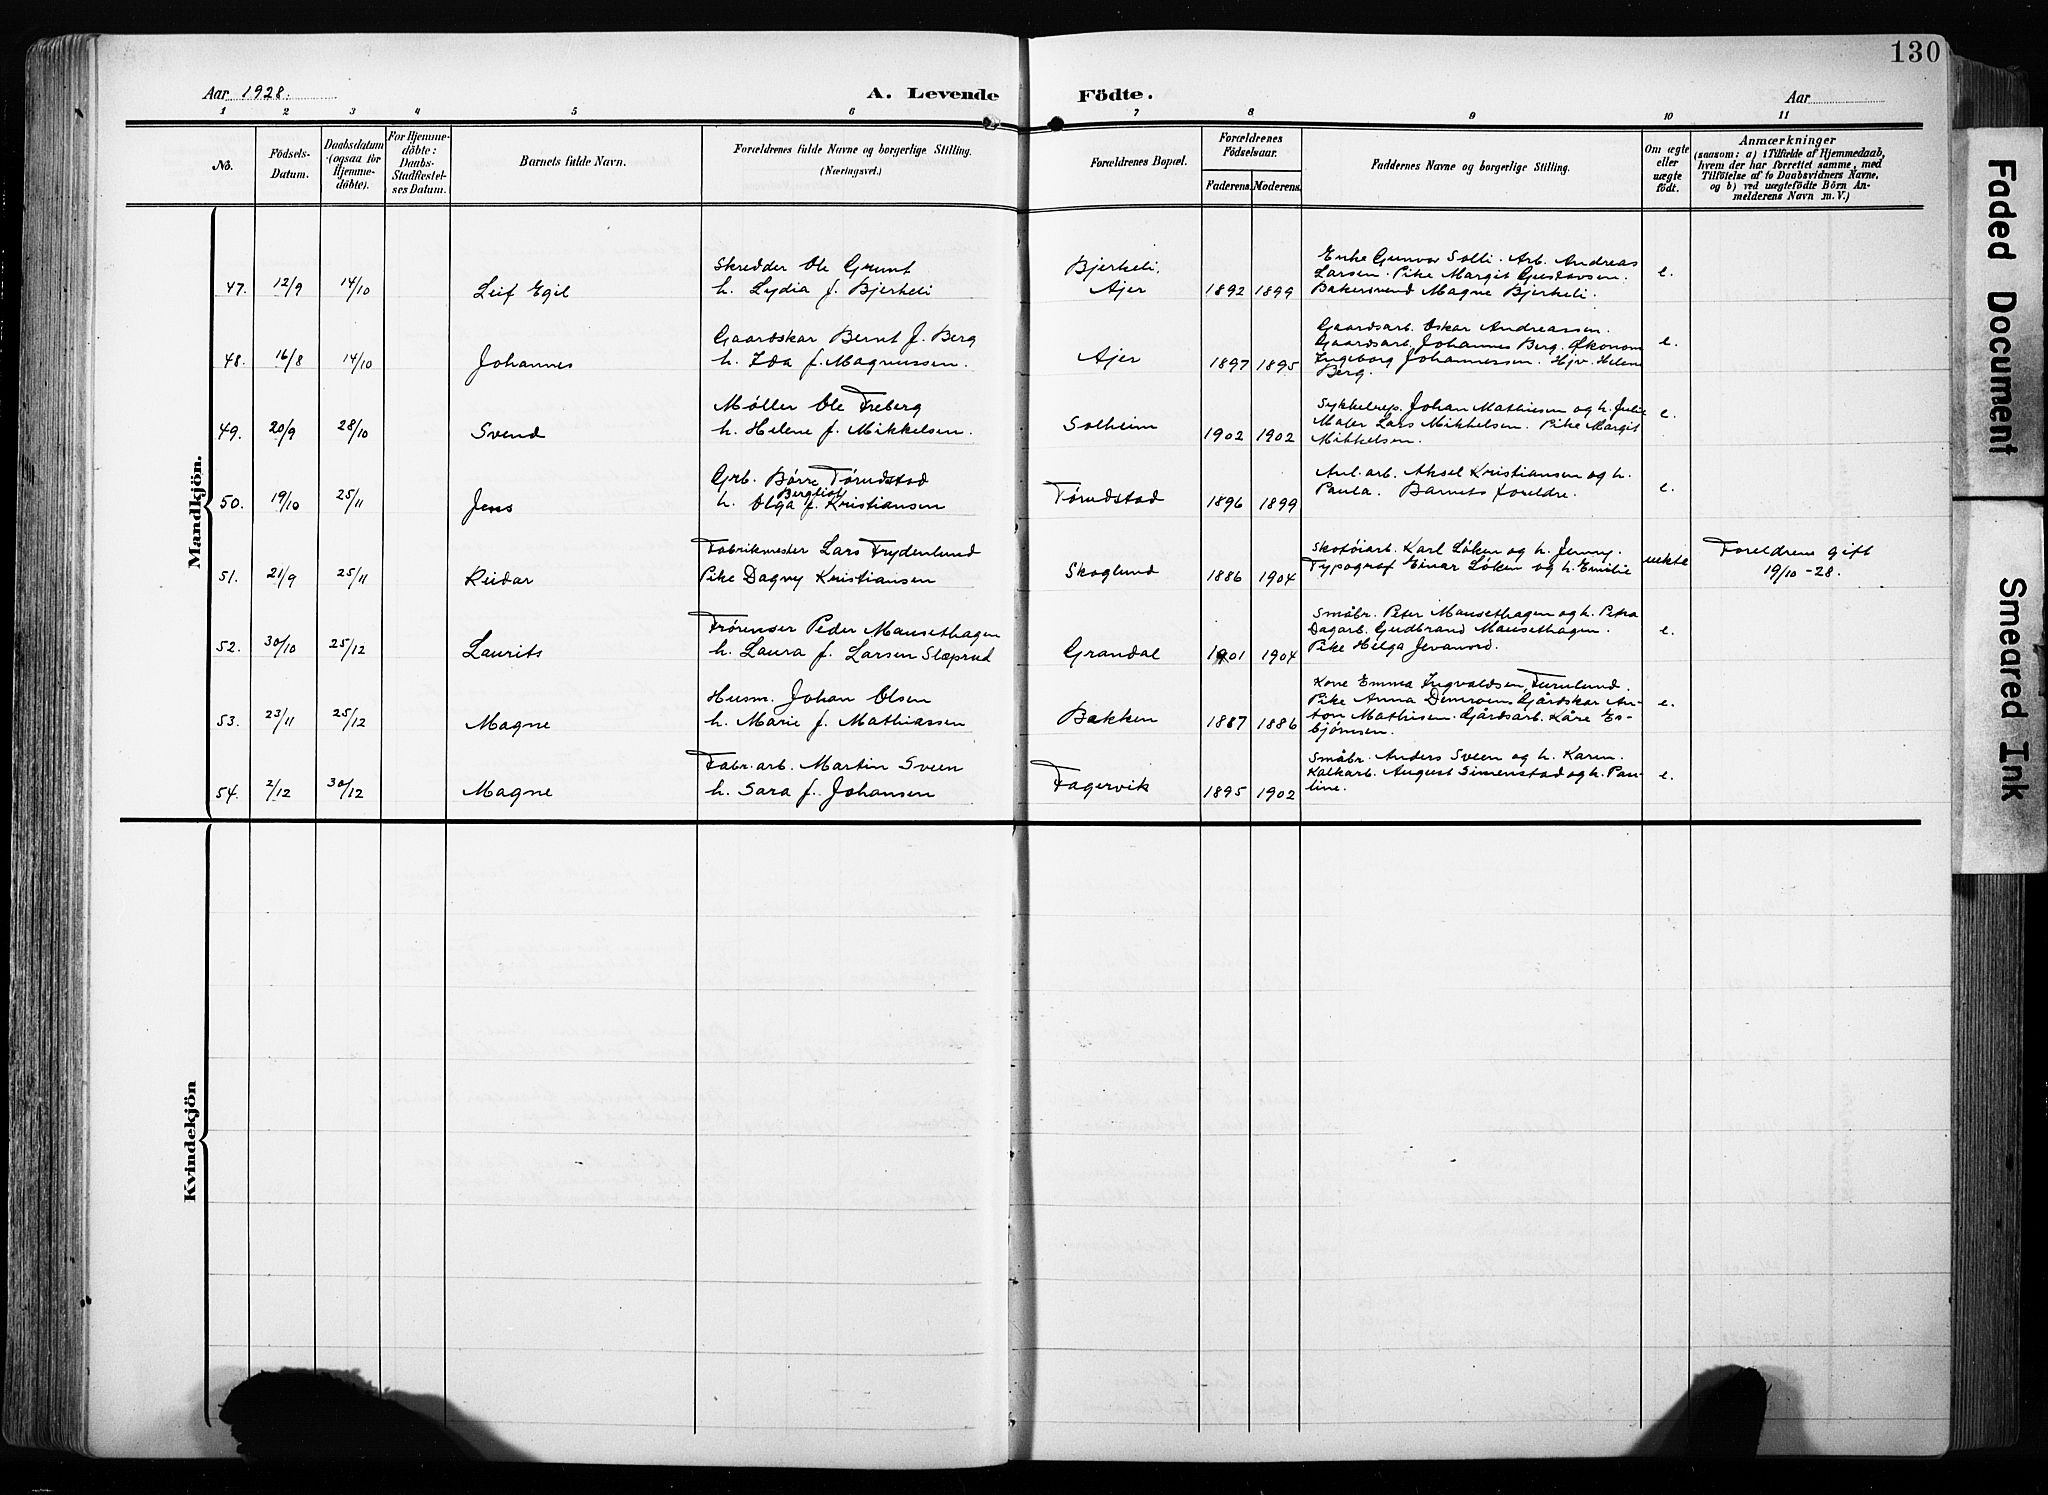 130
Aar 1928.
A. Levende Födte.
Aar
1 2 3 4 5 6 7 8 9 10 11
No.
Födsels-
Datum.
Daabsdatum
(ogsaa for
Hjemme-
döbte).
For Hjemme-
döbte:
Daabs-
Stadfæstel-
ses Datum.
Barnets fulde Navn.
Forældrenes fulde Navne og borgerlige Stilling.
(Næringsvei.)
Forældrenes Bopæl.
Forældrenes
Födselsaar.
Faderens. Moderens.
Faddernes Navne og borgerlige Stilling.
Om ægte
eller
uægte
födt.
Anmærkninger
(saasom: a) i Tilfælde af Hjemmedaab,
hvem der har forrettet samme, med
Tilföielse af to Daabsvidners Navne,
og b) ved uægtefödte Börn An-
melderens Navn m. V.)
Mandkjön.
47. 12/9 14/10 Leif Egil
Skredder Ole Grunt
h. Lydia f. Bjerkeli
Bjerkeli,
Ajer
1892 1899
Enke Gunvor Solli. Arb. Andreas
Larsen. Pike Margit Gustavsen.
Bakersvend Magne Bjerkeli.
e.
48. 16/8 14/10 Johannes
Gaardskar Bernt J. Berg
h. Ida f. Magnussen.
Ajer
1897 1895
Gaardsarb. Oskar Andreassen.
Gaardsarb. Johannes Berg. Økonom
Ingeborg Johannessen. Hjv. Helene
Berg.
e.
49. 20/9 28/10 Svend
Møller Ole Freberg
h. Helene f. Mikkelsen.
Solheim
1902 1902
Sykkelrep. Johan Mathiesen og h. Julie
Maler Lars Mikkelsen. Pike Margit
Mikkelsen.
e.
50. 19/10 25/11 Jens
Grb. Børre Tørudstad
Bergliot
h. Olga f. Kristiansen
Tørudstad
1896 1899
Anl. arb. Aksel Kristiansen og h.
Paula. Barnets foreldre.
e.
51. 21/9 25/11 Reidar
Fabrikmester Lars Frydenlund
Pike Dagny Kristiansen
Skoglund
1886 1904
Skotøiarb. Karl Løken og h. Jenny.
Typograf Einar Løken og h. Emilie
uekte
Foreldrene gift
19/10 -28.
52. 30/10 25/12 Laurits
Frørenser Peder Mausethagen
h. Laura f. Larsen Slæprud
Grandal
1901 1904
Småbr. Peter Mausethagen og h. Petra
Dagarb. Gudbrand Mausethagen.
Pike Helga Jevanord.
e.
53. 23/11 25/12 Magne
Husm. Johan Olsen
h. Marie f. Mathiassen
Bakken
1887 1886
Kone Emma Ingvaldsen, Furulund.
Pike Anna Gårdskar An-
ton Mathisen. Gårdsarb. Kåre Es-
bjørnsen.
e.
54. 2/12 30/12 Magne
Fabr. arb. Martin Sveen
h. Sara f. Johansen
Fagervik
1895 1902
Småbr. Anders Sveen og h. Karen.
Kalkarb. August Simenstad og h. Pau-
line.
e.
Kvindekjön
Faded Document
Smeared Ink